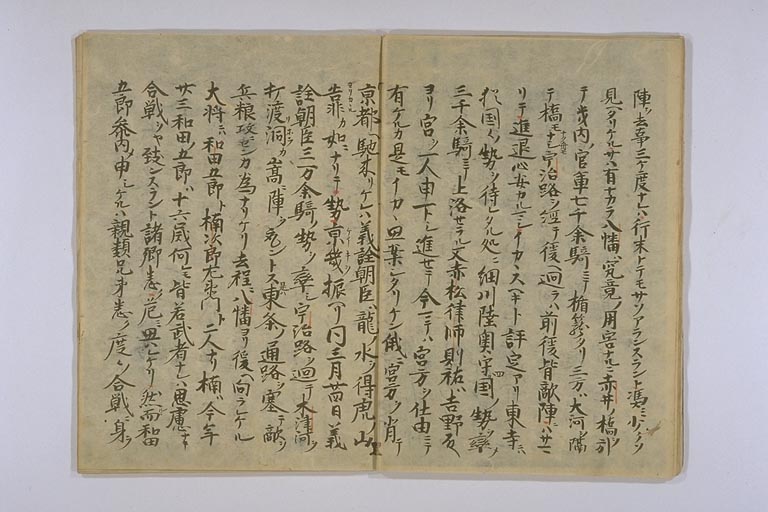 陣ヲ去事三ケ度ナレハ行末トテモサソアランスラント馮ミ少クソ
見ヘタリケルサハ有ナカラ八幡ハ究竟ノ用害ナルニ赤井ノ橋ヲ引
テ畿内ノ官軍七千余騎ニテ楯篭タリ三方ハ大河ヲ隔
テ橋モナシ宇治路ヲ経テ後ヘ廻ラハ前後皆敵陣ニハサマ
リテ進退心安カルマシイカヽスヘキト評定アリ東寺ニ
猶国々ノ勢ヲ待レタル処ニ細川陸奥守四国ノ勢ヲ率シ
三千余騎ニテ上洛セラル又赤松律師則祐ハ吉野殿
ヨリ宮ヲ一人申下シ進セテ今マテハ宮方ヲ仕由ニテ
有ケルカ是モイカヽ思案シタリケン俄ニ宮方ヲ背テ
京都ヘ馳来リケレハ義詮朝臣ハ龍ノ水ヲ得虎ノ山
靠カ如ニナリテ勢京畿ヲ振ヘリ同三月廿四日義
詮朝臣三万余騎ノ勢ヲ率シ宇治路ヲ廻テ木津河ヲ
打渡洞カ嵩ニ陣ヲ取ントス是ハ東条ノ通路ヲ塞テ敵ヲ
兵粮攻ニセンカ為ナリケリ去程ニ八幡ヨリ後ヘ向ラレケル
大将ニハ和田五郎ト楠次郎左衛門ト二人ナリ楠ハ今年
廿三和田五郎ハ十六歳何レモ皆若武者ナレハ思慮ナキ
合戦ヲヤ致ンスラント諸卿悉ク危ニ思ハレケリ然ルニ和田
五郎参内シ申シケルハ親類兄弟悉ク度々ノ合戦ニ身ヲ